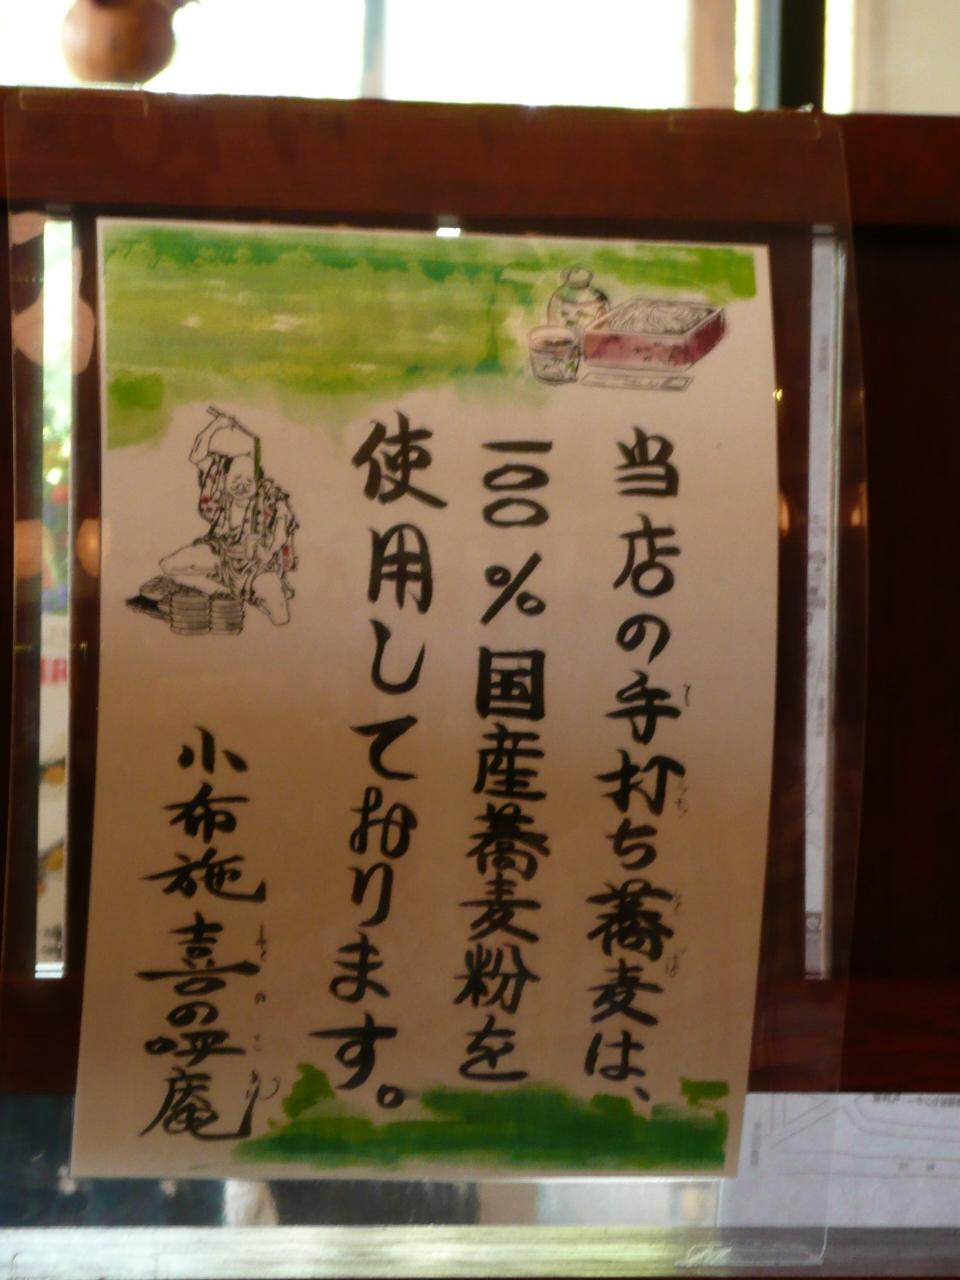 当店の手打ち蕎麦は、
一〇〇%国産蕎麦粉を
使用しております。
小布施 喜の呼庵